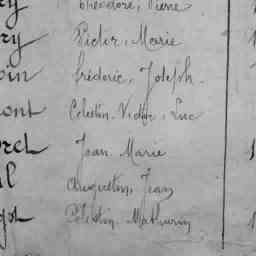 Théodore, Pierre
Victor, Marie
Frédéric, Joseph
ont Célestin, Victor, Luc
Jean Marie
Augustin, Jean
Célestin Mathurin